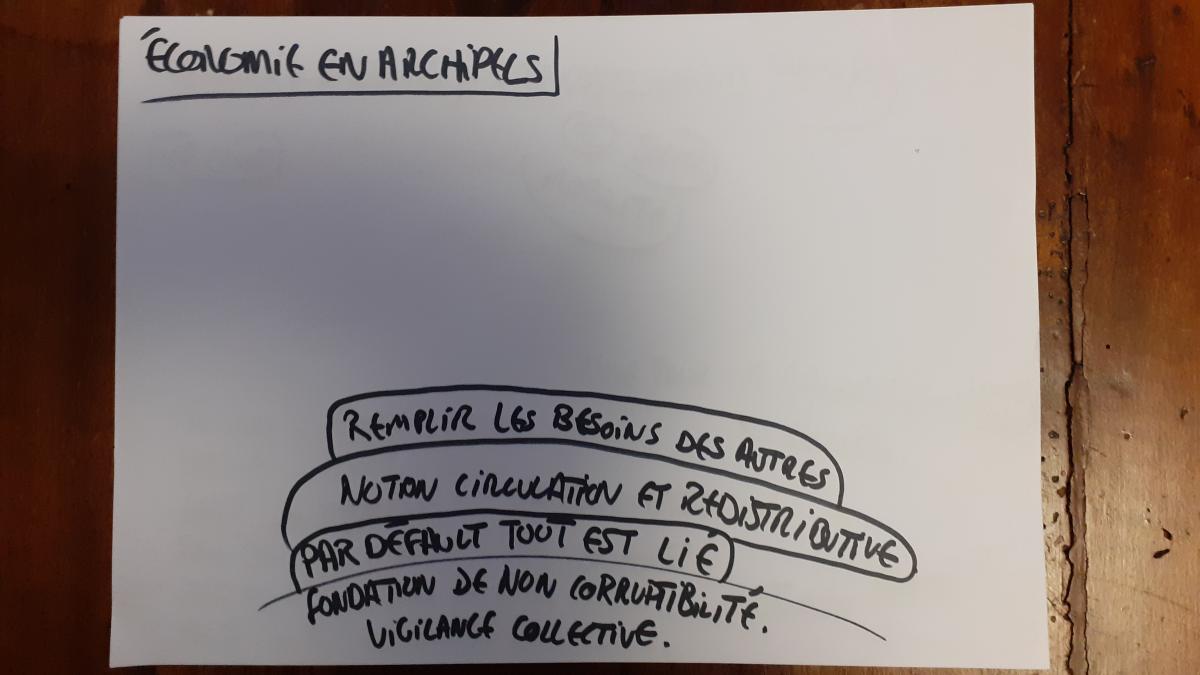 ÉCONOMIE EN ARCHIPELS
REMPLIR LES BESOINS DES AUTRES
NOTION CIRCULATION ET REDISTRIBUTIVE
PAR DÉFAULT TOUT EST LIÉ
FONDATION DE NON CORRUPTIBILITÉ.
VIGILANCE COLLECTIVE.